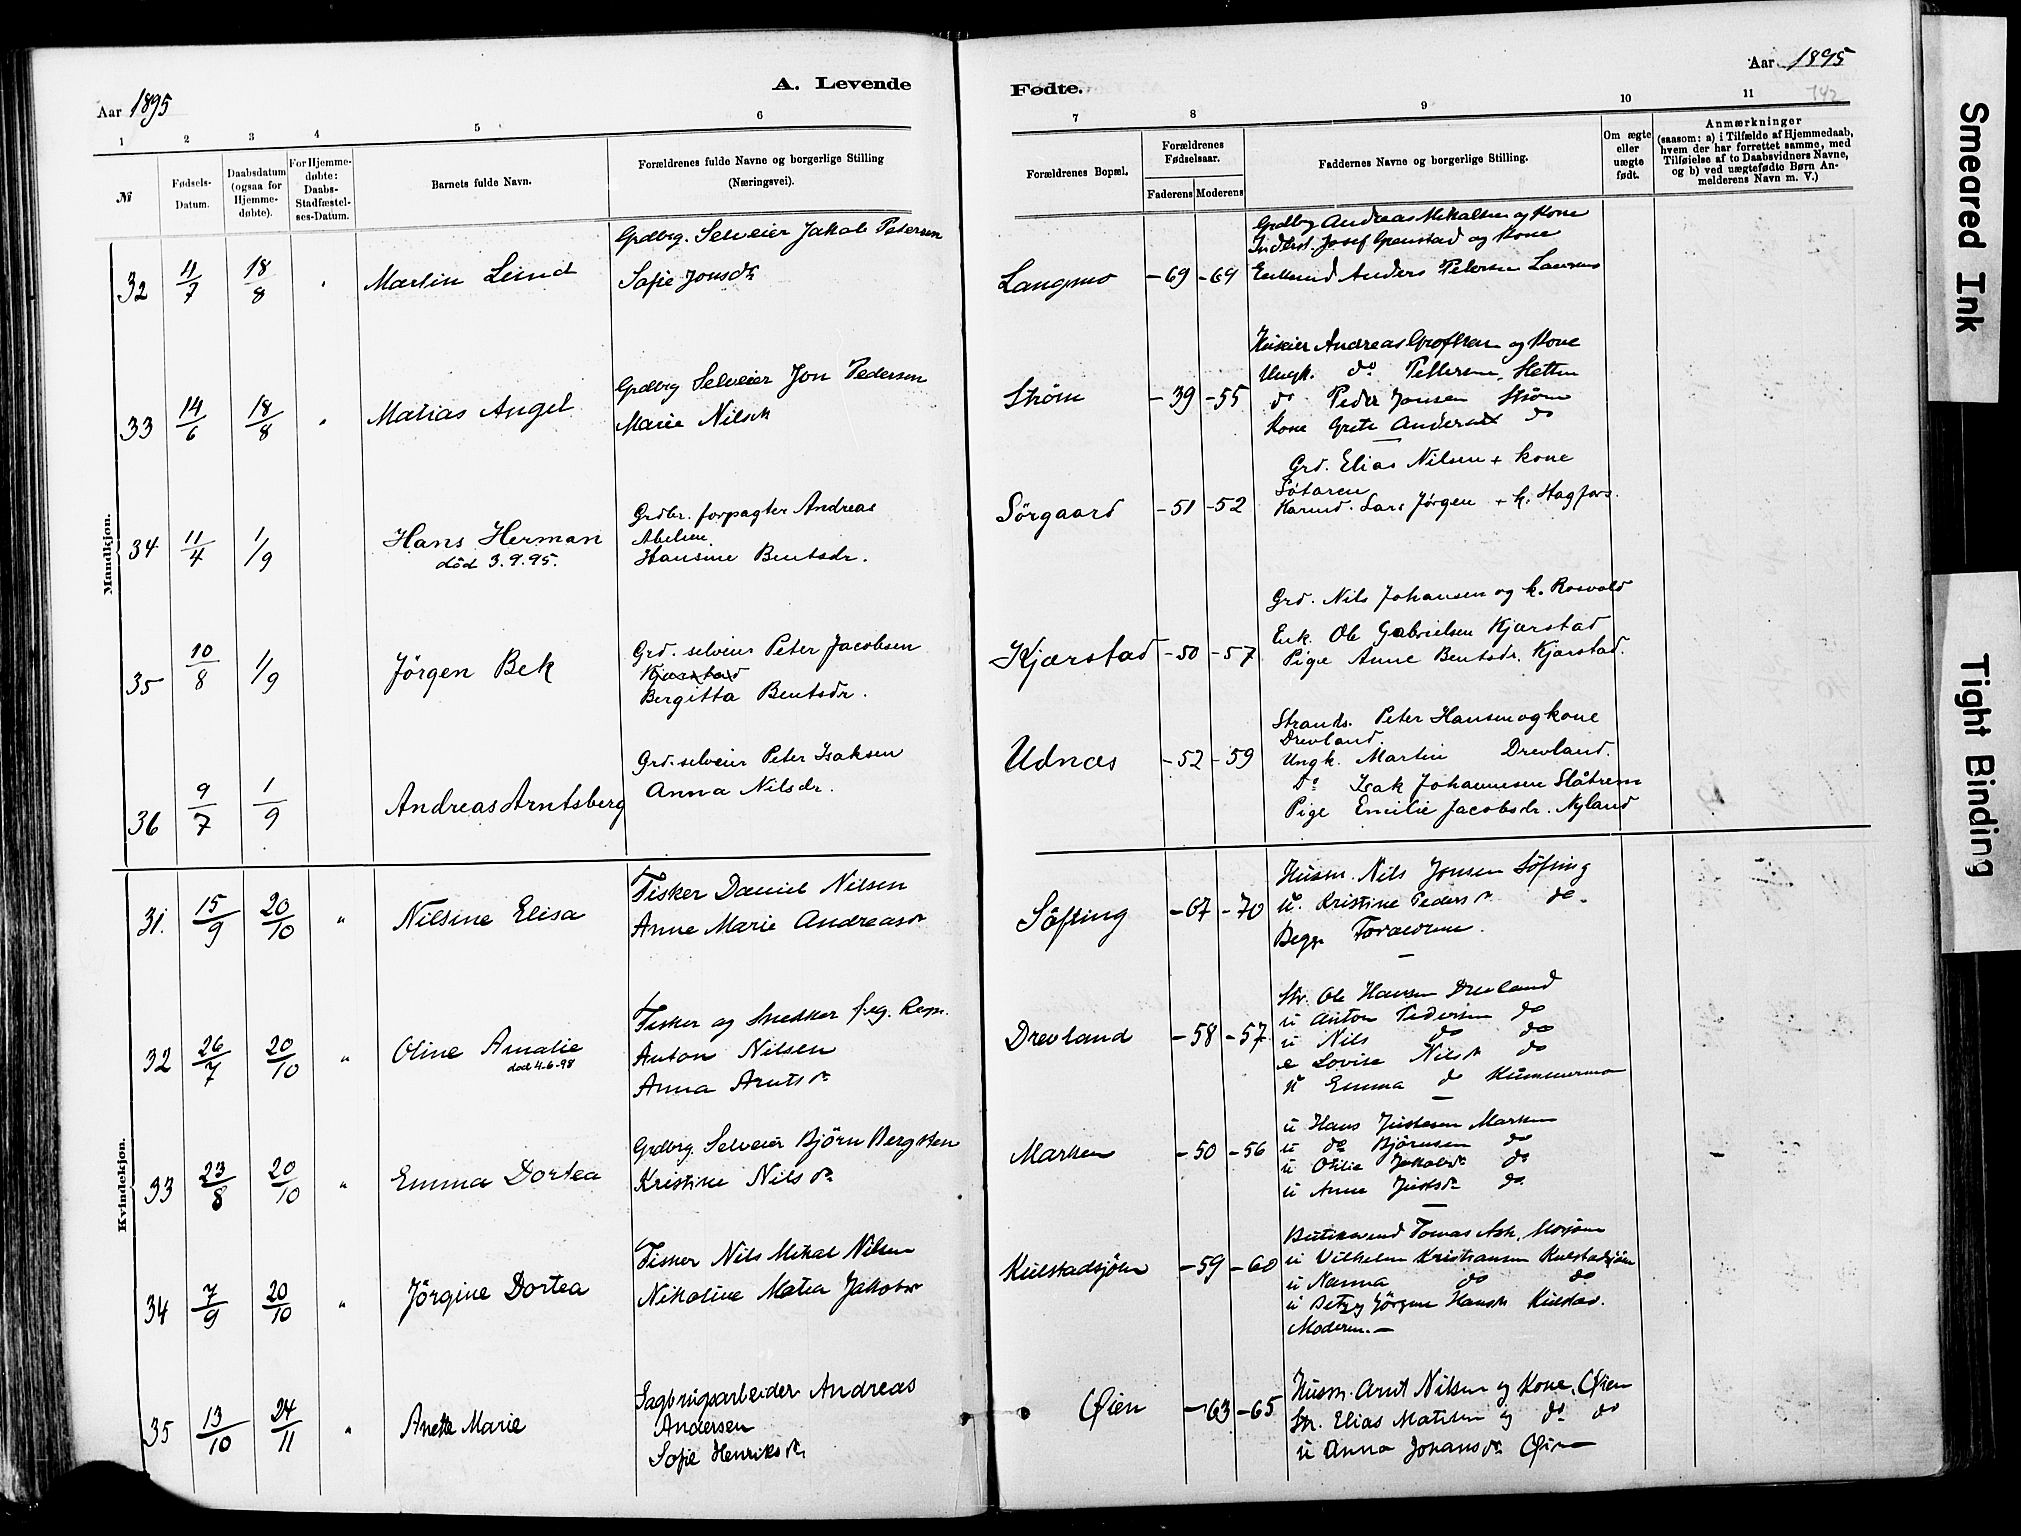 Aar 1895
A. Levende
1 2 3 4 5 6
№
Fødsels-Datum.
Daabsdatum (ogsaa for Hjemmedøbte).
For Hjemmedøbte: Daabs-Stadfæstelses-Datum.
Barnets fulde Navn.
Forældrenes fulde Navne og borgerlige Stilling
(Næringsvei).
Fødte.
Aar 1895
142
7 8 9 10 11
Forældrenes Bopæl.
Forældrenes Fødselsaar.
Faderens Moderens
Faddernes Navne og borgerlige Stilling.
Om ægte eller uægte født.
Anmærkninger
(saasom: a) i Tilfælde af Hjemmedaab,
hvem der har forrettet samme, med
Tilføielse af to Daabsvidners Navne,
og b) ved uægtefødte Børn Anmelderens Navn m. V.)
Mandkjøn.
32 11/7 18/8 Martin Lund
Grdbrg. Selveier Jakob Petersen
Sofie Jonsdr
Langmo -69 -69
Grdbrg Andreas Mikalsen og Kone
Inderst. Josef Grenstad og Kone
Enkemd Anders Petersen
33 14/6 18/8 Matias Angel
Grdbrg Selveier Jon Pedersen
Marie Nilsdr
Strøm -39 -55
Huseier Andreas og Kone
Ungk. do Pettersen, Sletten
do Peder Jonsen Strøm
Kone Grete do
34 11/4 1/9 Hans Herman
død 3.9.95.
Grdbr. forpagter Andreas
Abelsen
Hansine Bentsdr.
Sörgaard -51 -52
Grd. Elias Nilsen + kone
Söfaren
Lars Jørgen + k. Hagfors.
35 10/8 1/9 Jörgen Bek
Grd. selveier Peter Jacobsen
Kjærstad
Bergitta Bentsdr.
Kjærstad -50 -57
Grd. Nils Johansen og k. Rosvold
Enk. Ole Gabrielsen Kjærstad
Pige Anne Bentsdr. Kjærstad.
36 9/7 1/9 Andreas Arntsberg
Grd. selveier Peter Isaksen
Anna Nilsdr.
Udnæs -52 -59
Strands. Peter Hansen og kone
Drevland.
Ungk. Martin Drevland.
Do Isak Johannesen Slåtrem
Pige Emilie Jacobsdr. Nyland
Kvindekjøn.
31. 15/9 20/10 " Nilsine Elisa
Fisker Daniel Nilsen
Anne Marie Andreasdr
Söfting -67 -70
Husm. Nils Jonsen Söfting
u. Kristine Pedersdr do.
Begge Forældrene.
32 26/7 20/10 " Oline Amalie
død 4.6-98
Fisker og Snedker
Anton Nilsen
Anna Arntsdr
Drevland -58 -57
Str. Ole Hansen Drevland
u Anton Pedersen do
u Nils do do
e Lovise Nilsdr do
u Emma do Kummermo
33 23/8 20/10 " Emma Dortea
Grdbrg. Selveier Björn Bergsten
Kristine Nilsdr
Marken -50 -56
u Hans Justesen Marken
u do Björnsen do
u Otilie Jakobsdr do
u Anne Justsdr do.
34 7/9 20/10 " Jörgine Dortea
Fisker Nils Mikal Nilsen
Nikoline Matea Jakobsdr
Kulstadsjøen -59 -60
Tomas Ask, Mosjøen
u Vilhelm Kristiansen Kulstadsjøen
u Nanna do do
u Betzy Jörgine Hansdr Kulstad.
Moderen.
35 13/10 24/11 " Anette Marie
Sagbrugsarbeider Andreas
Andersen
Sofie Henriksdr
Øien -63 -65
Husm. Arnt Nilsen og Kone, Øien
Str. Elias Matisen og do do
u Anna Johansdr Øien
Smeared Ink
Tight Binding